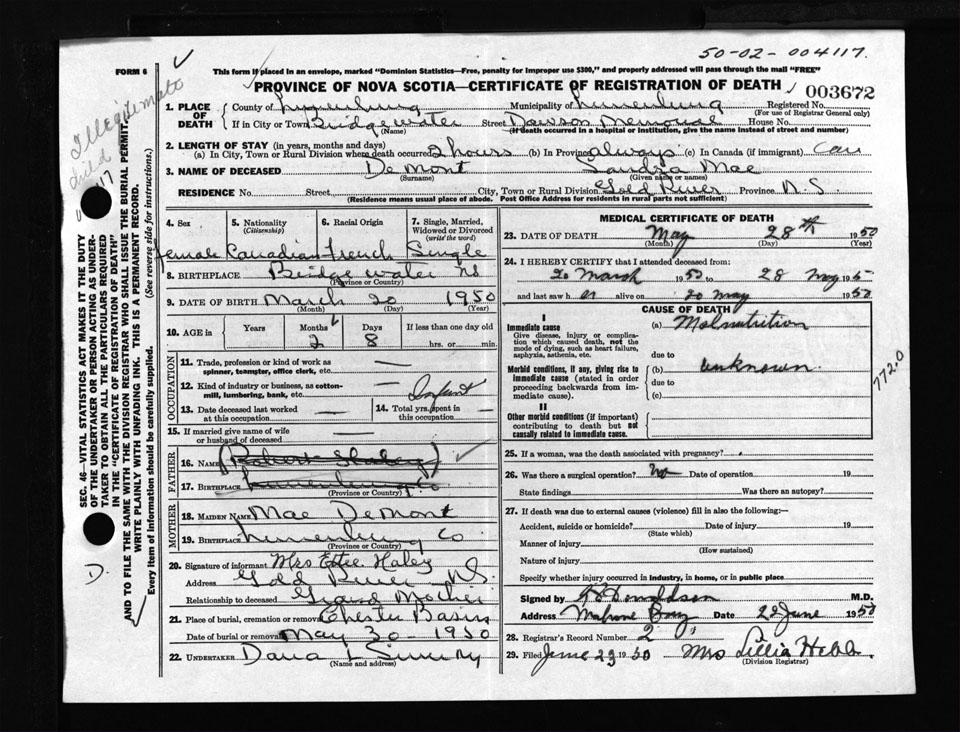 50-02-004117.
FORM 6
This form if placed in an envelope, marked "Dominion Statistics—Free, penalty for improper use $300," and properly addressed will pass through the mail "FREE"
PROVINCE OF NOVA SCOTIA—CERTIFICATE OF REGISTRATION OF DEATH
003672
Illegitimate
child
17
D.
SEC. 46—VITAL STATISTICS ACT MAKES IT THE DUTY
OF THE UNDERTAKER OR PERSON ACTING AS UNDER-
TAKER TO OBTAIN ALL THE PARTICULARS REQUIRED
IN THE "CERTIFICATE OF REGISTRATION OF DEATH"
AND TO FILE THE SAME WITH THE DIVISION REGISTRAR WHO SHALL ISSUE THE BURIAL PERMIT.
WRITE PLAINLY WITH UNFADING INK. THIS IS A PERMANENT RECORD.
Every item of Information should be carefully supplied. (See reverse side for instructions.)
1. PLACE OF DEATH County of Lunenburg Municipality of Lunenburg Registered No.
(For use of Registrar General only)
If in City or Town Bridgewater Street Dawson Memorial House No.
(Name) (If death occurred in a hospital or institution, give the name instead of street and number)
2. LENGTH OF STAY (in years, months and days)
(a) In City, Town or Rural Division where death occurred 2 hours (b) In Province always (c) In Canada (if immigrant) Can
3. NAME OF DECEASED De Mont Sandra Mae
(Surname) (Given name or names)
RESIDENCE No. Street City, Town or Rural Division Gold River Province N.S.
(Residence means usual place of abode. Post Office Address for residents in rural parts not sufficient)
4. Sex 5. Nationality (Citizenship) 6. Racial Origin 7. Single, Married, Widowed or Divorced (write the word)
female Canadian French Single
8. BIRTHPLACE Bridgewater NS
(Province or Country)
9. DATE OF BIRTH March 20 1950
(Month) (Day) (Year)
10. AGE in Years Months Days If less than one day old
2 8 hrs. or min.
OCCUPATION
11. Trade, profession or kind of work as
spinner, teamster, office clerk, etc. —
12. Kind of industry or business, as cotton-
mill, lumbering, bank, etc. — Infant
13. Date deceased last worked
at this occupation —
14. Total yrs. spent in
this occupation —
15. If married give name of wife
or husband of deceased —
FATHER
16. NAME (Robert Shaley)
17. BIRTHPLACE Lunenburg Co
(Province or Country)
MOTHER
18. MAIDEN NAME Mae DeMont
19. BIRTHPLACE Lunenburg Co
(Province or Country)
20. Signature of informant Mrs Haley
Address Gold River NS.
Relationship to deceased Grand Mother
21. Place of burial, cremation or removal Chester Basin
Date of burial or removal May 30 - 1950
22. UNDERTAKER Dana L
(Name and address)
MEDICAL CERTIFICATE OF DEATH
23. DATE OF DEATH May 28th 1950
(Month) (Day) (Year)
24. I HEREBY CERTIFY that I attended deceased from:
20 March 1950 to 28 May 195
and last saw h er alive on 20 May 1950
CAUSE OF DEATH
I
Immediate cause
Give disease, injury or complica-
tion which caused death, not the
mode of dying, such as heart failure,
asphyxia, asthenia, etc.
(a) Malnutrition
due to
Morbid conditions, if any, giving rise to
immediate cause (stated in order
proceeding backwards from im-
mediate cause).
(b) unknown.
due to
(c)
772.0
II
Other morbid conditions (if important)
contributing to death but not
causally related to immediate cause.
25. If a woman, was the death associated with pregnancy?
26. Was there a surgical operation? No Date of operation 19
State findings Was there an autopsy?
27. If death was due to external causes (violence) fill in also the following:—
Accident, suicide or homicide? Date of injury 19
(State which)
Manner of injury
(How sustained)
Nature of injury
Specify whether injury occurred in industry, in home, or in public place
Signed by Donaldson M.D.
Address Mahone Bay Date 22 June 1950
28. Registrar's Record Number 2
29. Filed June 23 1950 Mrs Lillia Hebb
(Division Registrar)